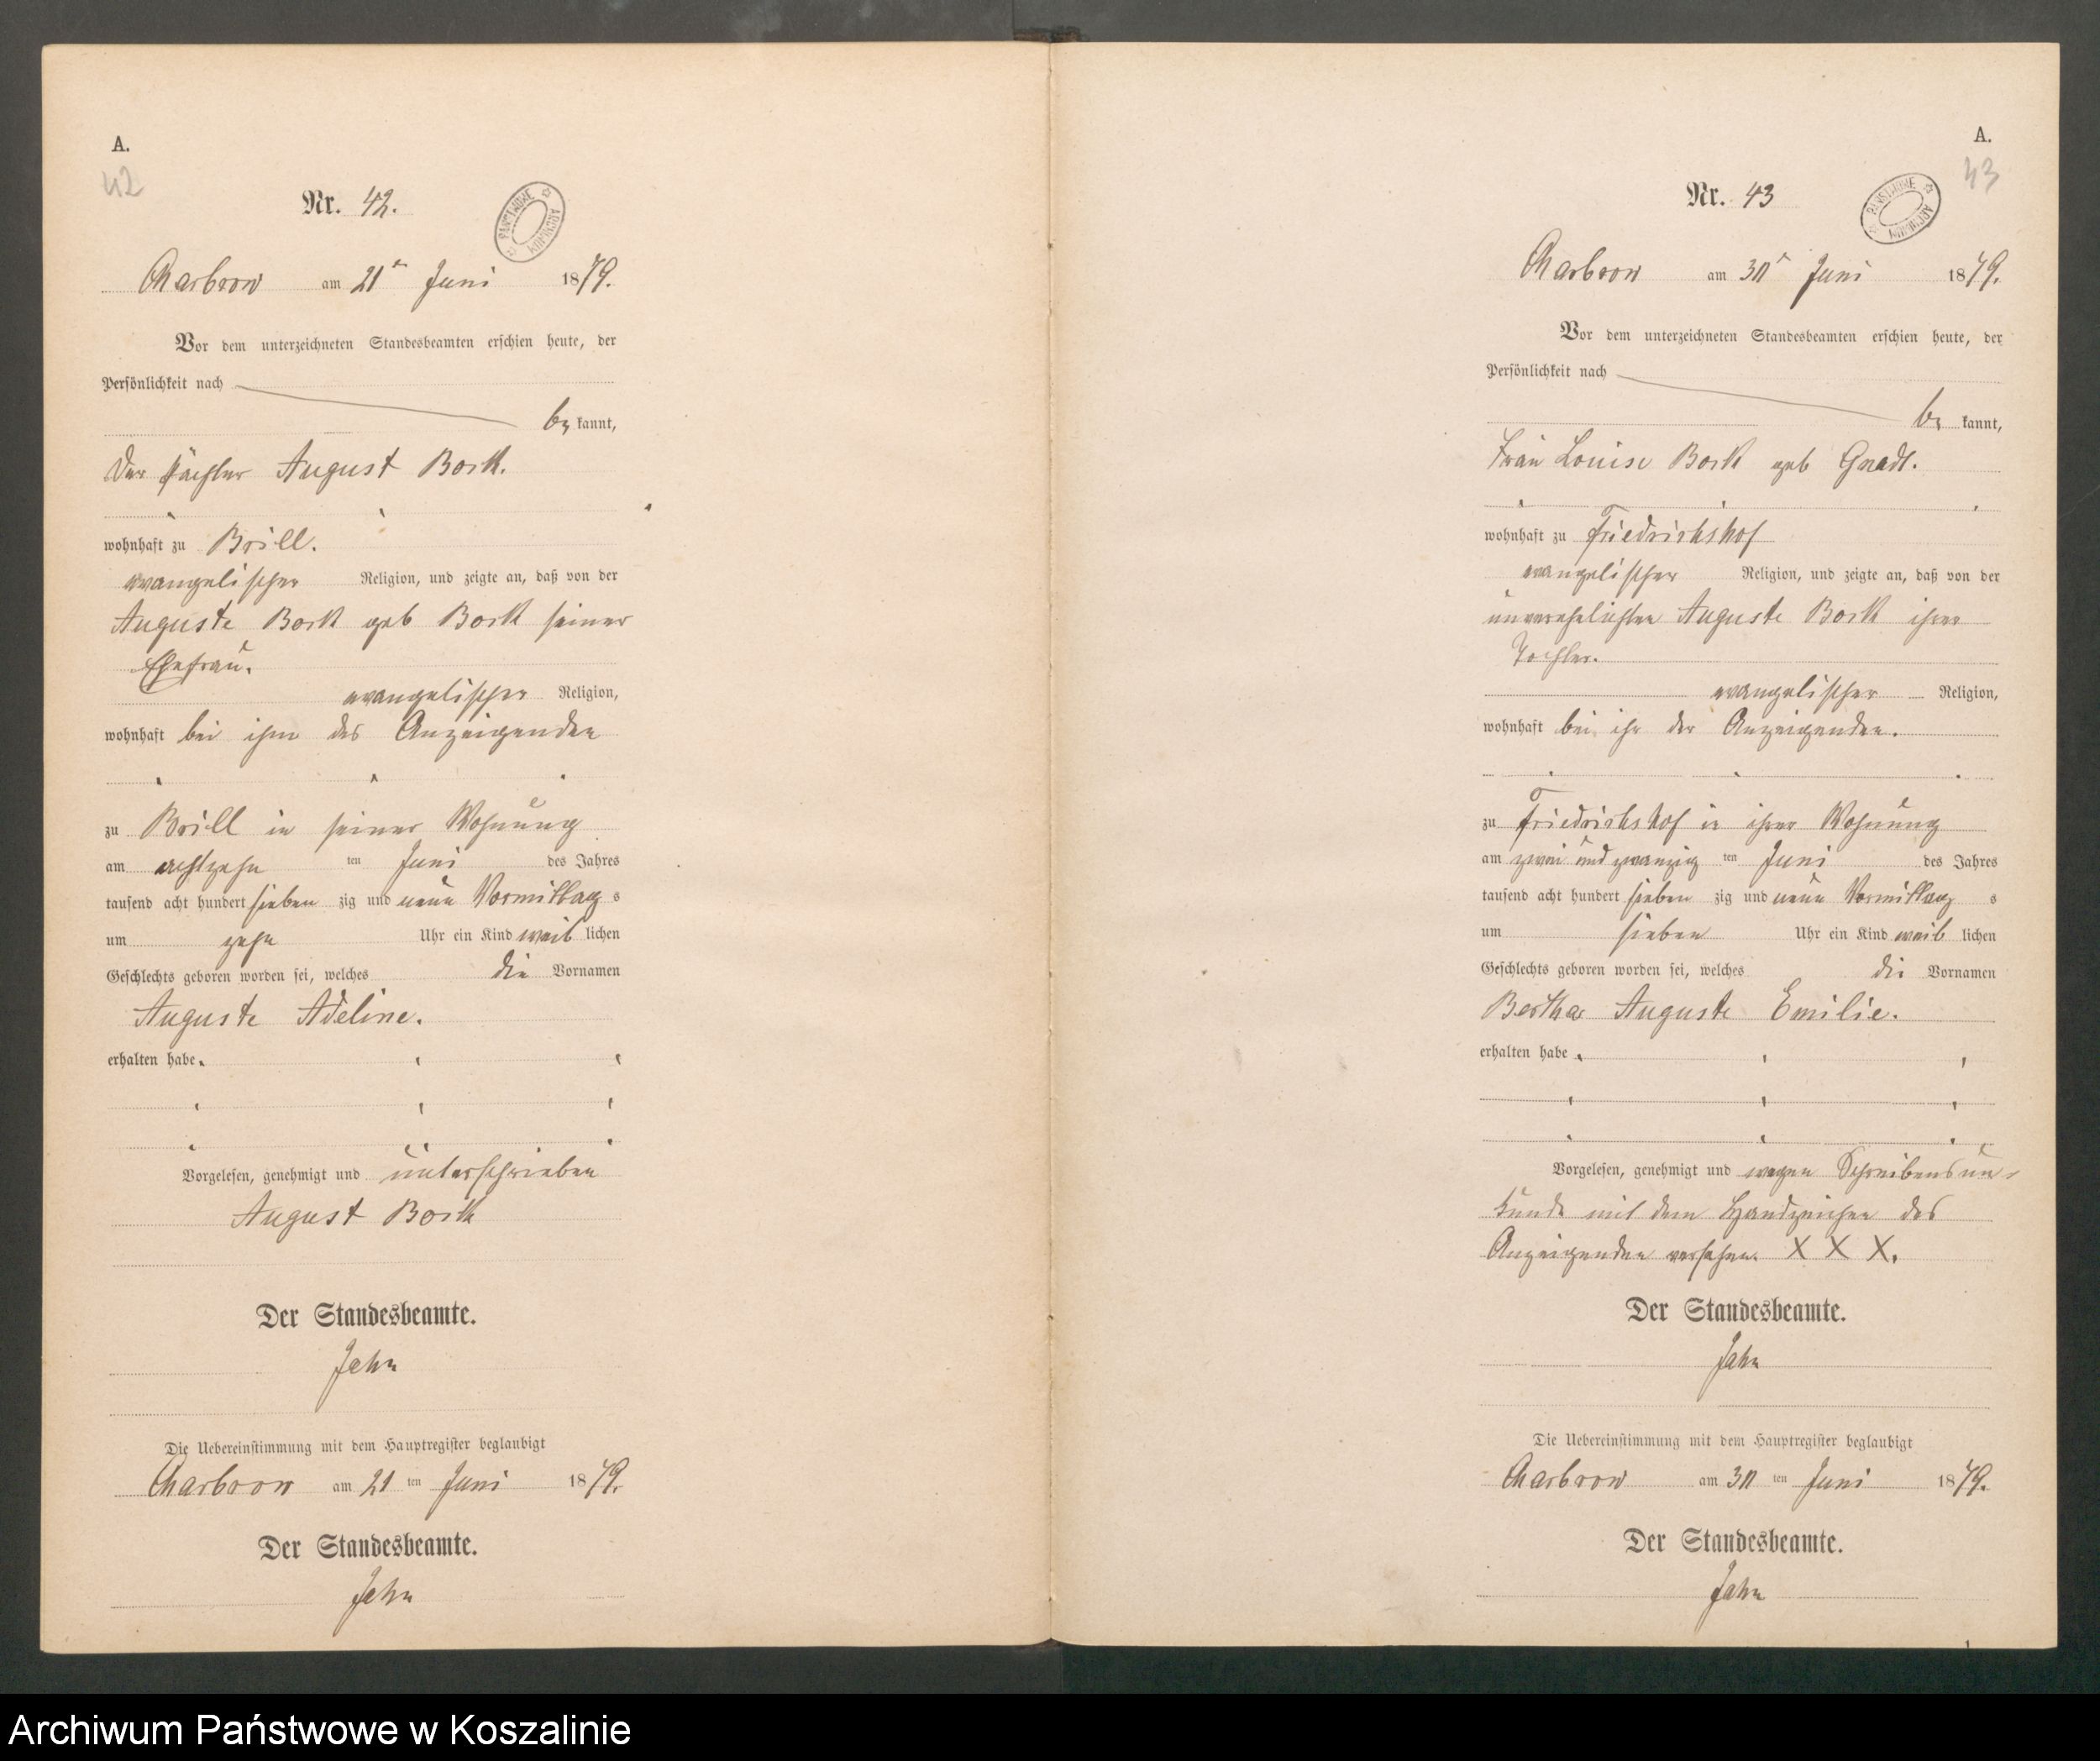 A.
42
Nr. 42.
PANSTWOWE ARCHIWUM
Charbrow am 21n Juni 1879.
Vor dem unterzeichneten Standesbeamten erschien heute, der
Persönlichkeit nach
be kannt,
Der Pächter August Bork.
wohnhaft zu Brill.
evangelischer Religion, und zeigte an, daß von der
Auguste Bork geb Bork seiner
Ehefrau.
evangelischer Religion,
wohnhaft bei ihm des Anzeigenden
zu Brill in seiner Wohnung
am achtzehn ten Juni des Jahres
tausend acht hundert sieben zig und neun Vormittag s
um zehn Uhr ein Kind weib lichen
Geschlechts geboren worden sei, welches die Vornamen
Auguste Adeline.
erhalten habe.
Vorgelesen, genehmigt und unterschrieben
August Bork
Der Standesbeamte.
Jahn
Die Uebereinstimmung mit dem Hauptregister beglaubigt
Charbrow am 21 ten Juni 1879.
Der Standesbeamte.
Jahn
A.
43
Nr. 43
PANSTWOWE ARCHIWUM
Charbrow am 30n Juni 1879.
Vor dem unterzeichneten Standesbeamten erschien heute, der
Persönlichkeit nach
be kannt,
Frau Louise Bork geb
wohnhaft zu Friedrichshof
evangelischer Religion, und zeigte an, daß von der
unverehelichten Auguste Bork ihrer
Tochter.
evangelischer Religion,
wohnhaft bei ihr der Anzeigenden.
zu Friedrichshof in ihrer Wohnung
am zwei und zwanzig ten Juni des Jahres
tausend acht hundert sieben zig und neun Vormittag s
um sieben Uhr ein Kind weib lichen
Geschlechts geboren worden sei, welches die Vornamen
Bertha Auguste Emilie.
erhalten habe.
Vorgelesen, genehmigt und wegen Schreibensun-
kunde mit dem Handzeichen des
Anzeigenden versehen. X X X.
Der Standesbeamte.
Jahn
Die Uebereinstimmung mit dem Hauptregister beglaubigt
Charbrow am 30 ten Juni 1879.
Der Standesbeamte.
Jahn
Archiwum Państwowe w Koszalinie